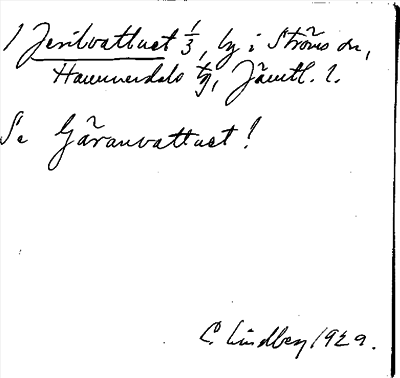 1 Jerilvattnet 1/3, by i Ströms sn,
Hammerdals tg, Jämtl. l.
Se Gärdnvattnet!
C. Lindberg 1929.